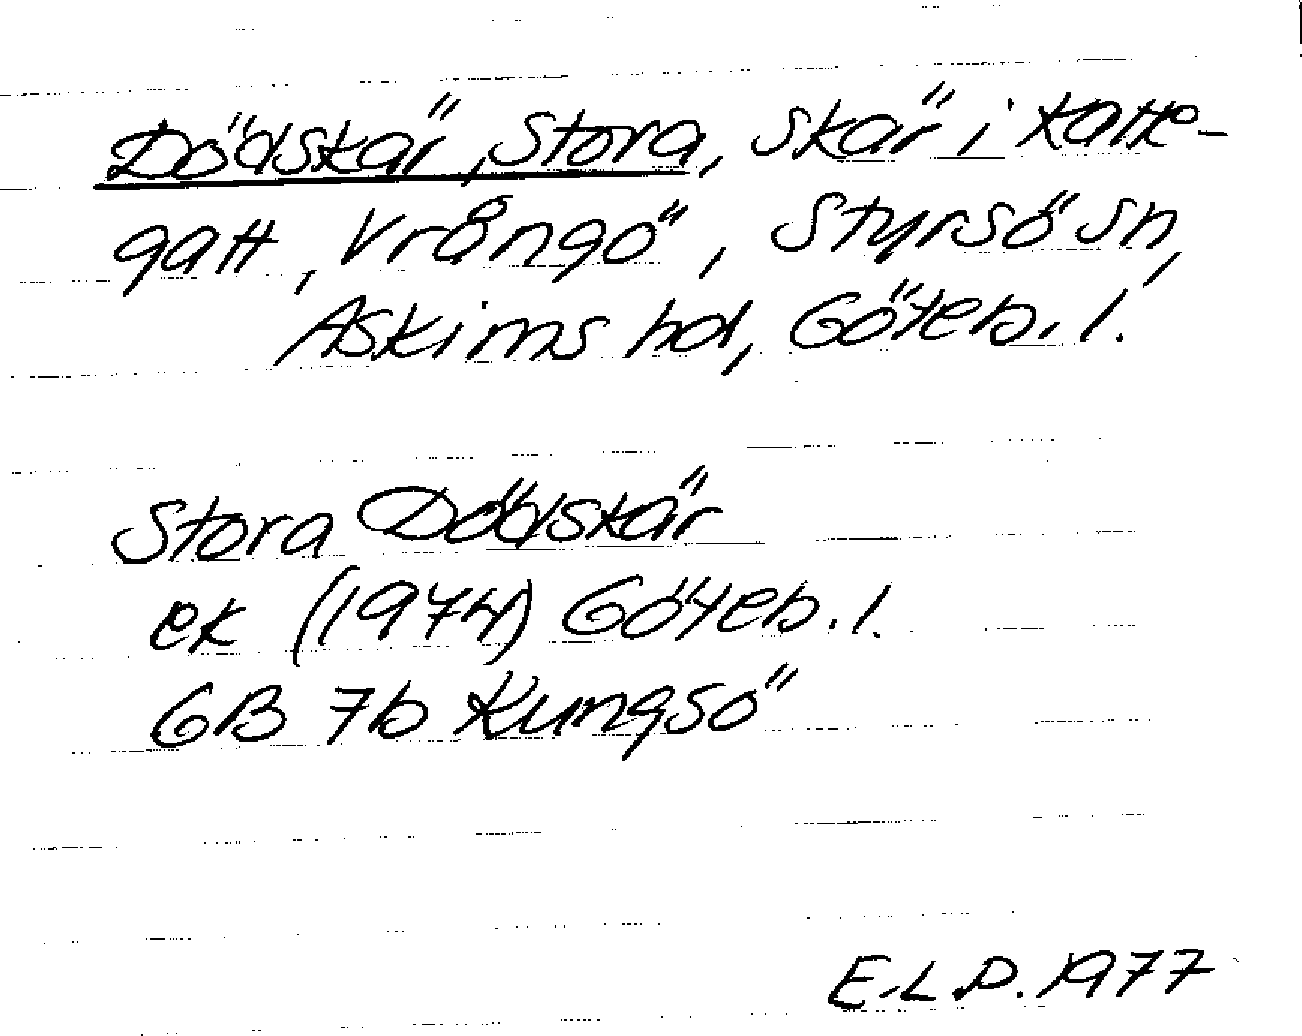 Dödskär, Stora, skär i Katte-
gatt, Vrångö, Styrsö sn,
Askims hd, Göteb. l.
Stora Dödskär
ek (1974) Göteb. l.
GB 7b Kungsö
E.L.P. 1977